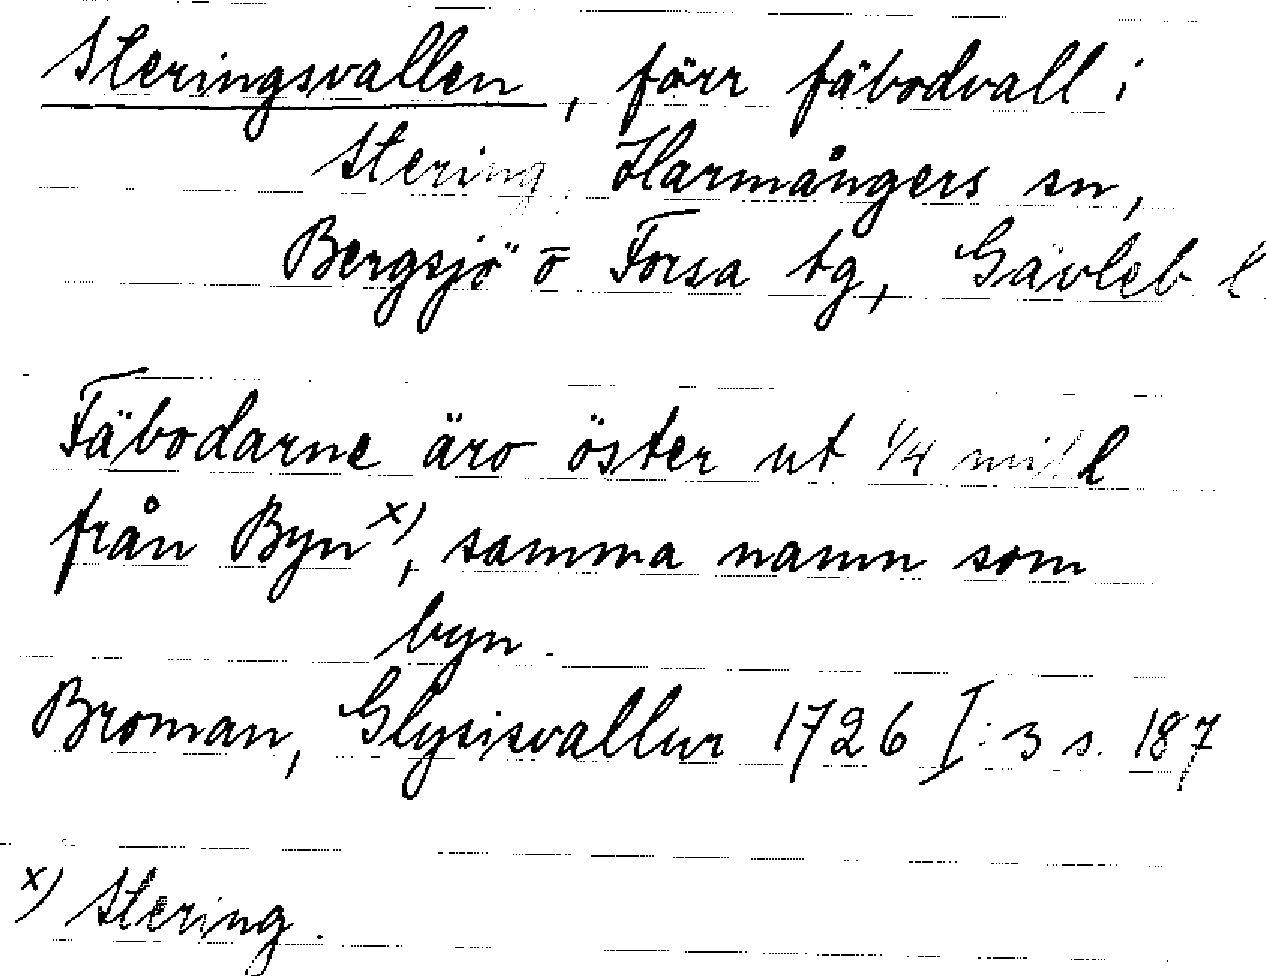 Steringsvallen, förr fäbodvall i
Stering, Harmångers sn,
Bergsjö o Forsa tg, Gävleb l
Fäbodarne äro öster ut 1/4 mill
från Byn x), samma namn som
byn.
Broman, Glysisvallur 1726 I:3 s. 187
x) Stering.